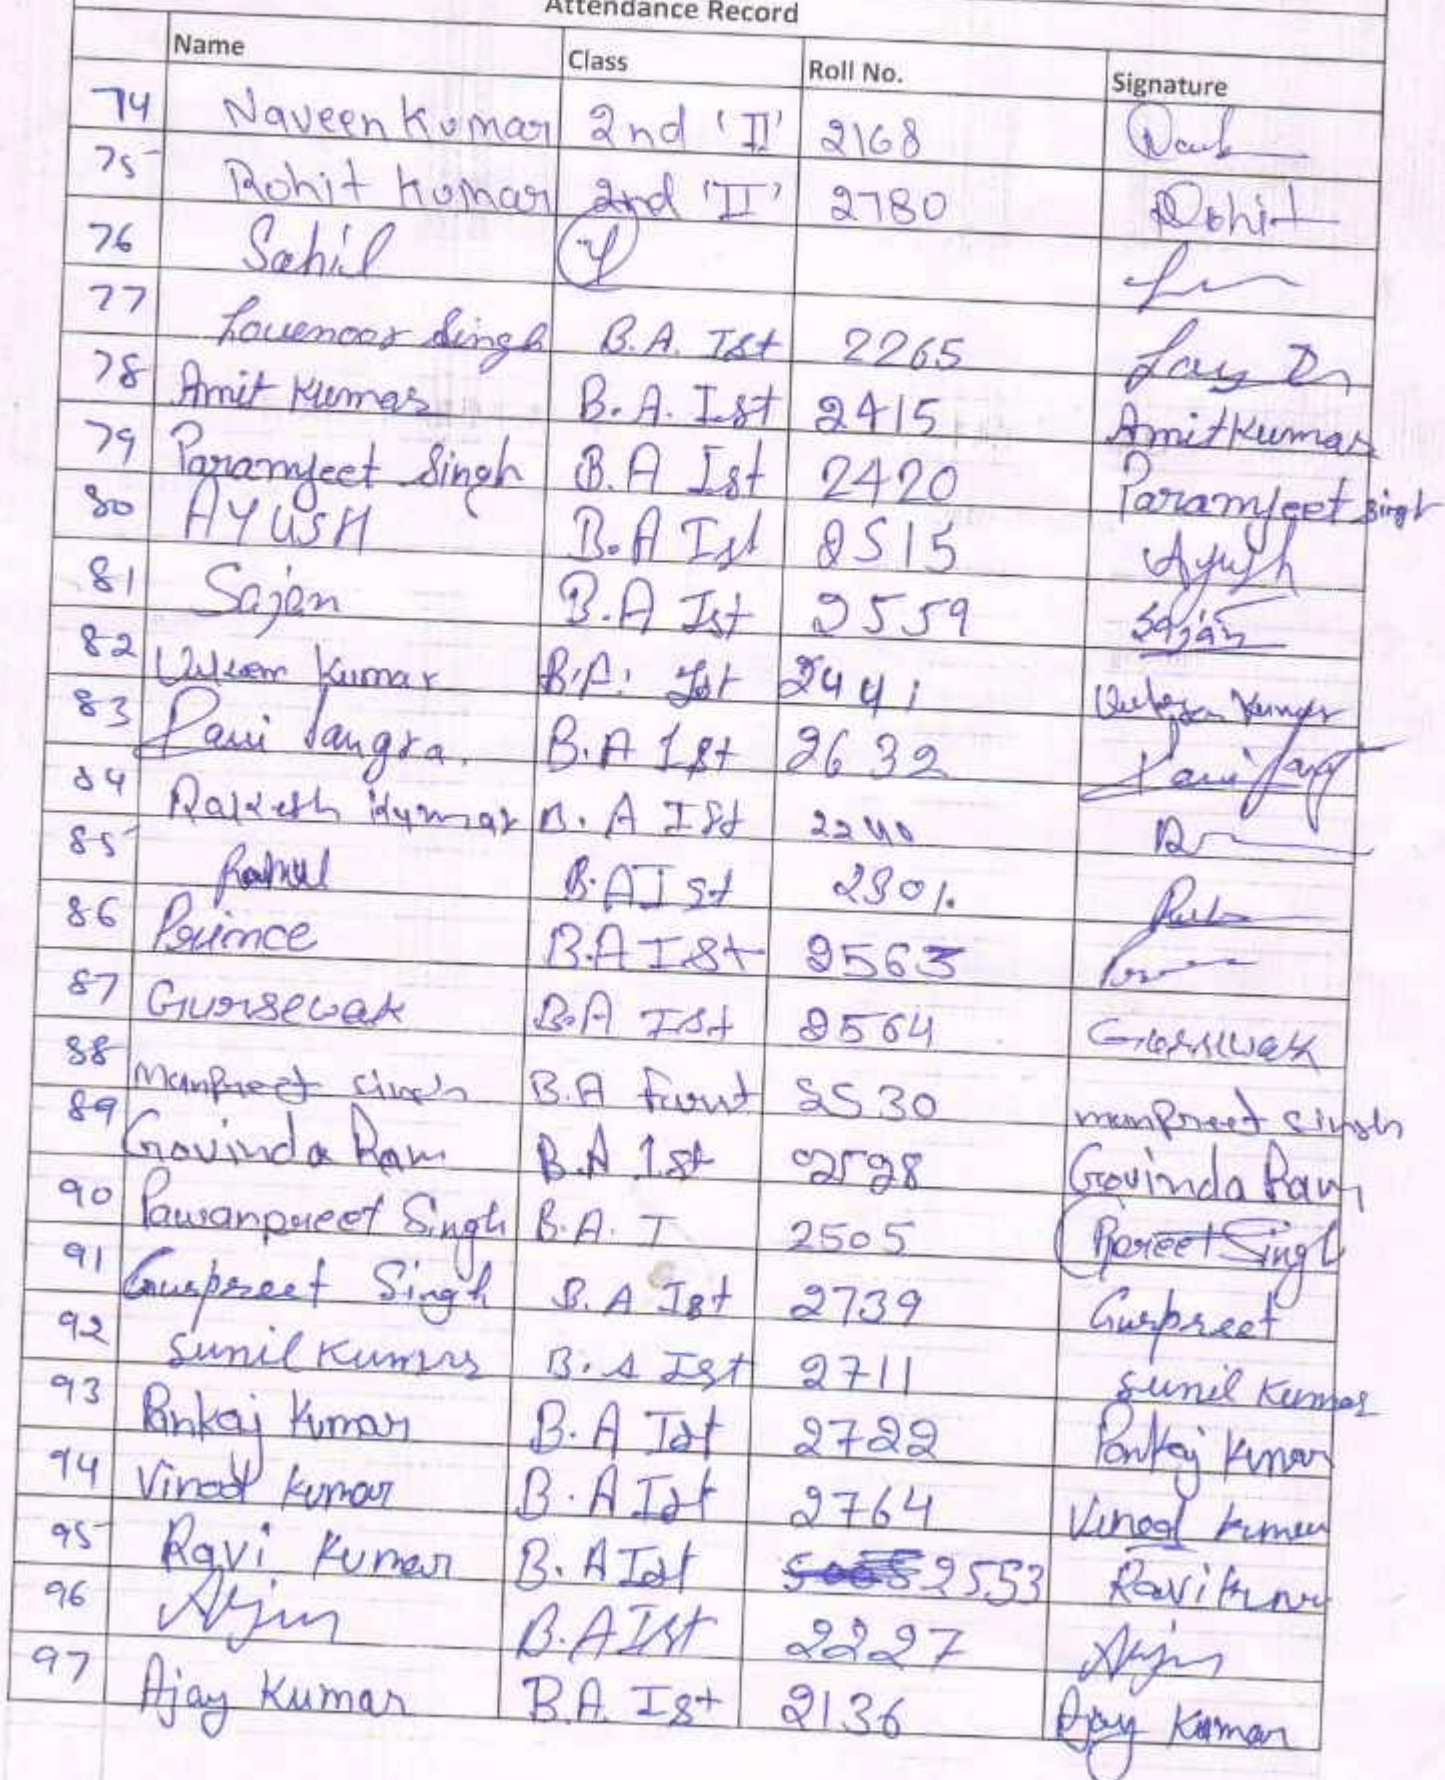 Attendance Record
Name Class Roll No. Signature
74 Naveen Kumar 2nd 'II' 2168
75 Rohit Kumar 2nd 'II' 2780 Rohit
76 Sahil
77 Lovenoor Singh B.A. Ist 2265
78 Amit Kumar B.A. Ist 2415 Amit Kumar
79 Paramjeet Singh B.A Ist 2420 Paramjeet Singh
80 AYUSH B.A Ist 2515 Ayush
81 Sajan B.A Ist 2559 Sajan
82 Kumar B.A. Ist 2441 Kumar
83 Ravi Jangra. B.A 1st 2632 Ravi Jang
84 Rakesh Kumar B. A ISt 2240
85 Rahul B.A I St 2301.
86 Prince B.A ISt 2563
87 Gursewak B.A ISt 2564 Gursewak
88 Manpreet Singh B.A First 2530 manpreet Singh
89 Govinda Ram B.A 1st 2528 Govinda Ram
90 Pawanpreet Singh B.A. I 2505 Preet Singh
91 Gurpreet Singh B.A Ist 2739 Gurpreet
92 Sunil Kumar B.A Ist 2711 Sunil Kumar
93 Pankaj Kumar B.A Ist 2722 Pankaj Kumar
94 Vinod Kumar B.A Ist 2764 Vinod Kumar
95 Ravi Kumar B.A Ist 2553 Ravi Kumar
96 Arjun B.A Ist 2227 Arjun
97 Ajay Kumar B.A. Ist 2136 Ajay Kumar